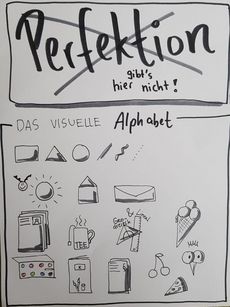 Perfektion
gibt's
hier nicht!
DAS VISUELLE Alphabet
TEE